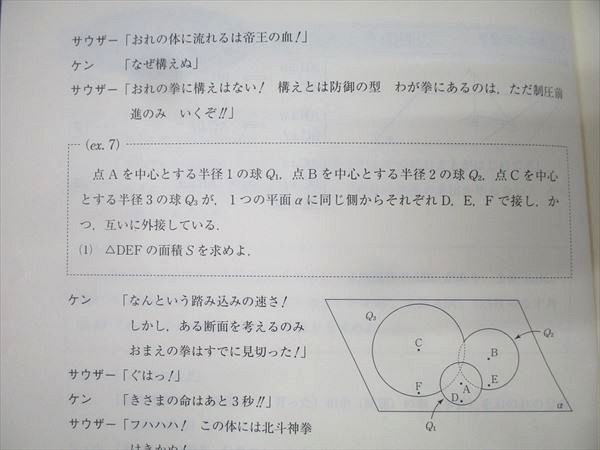 サウザー「おれの体に流れるは帝王の血!」
ケン 「なぜ構えぬ」
サウザー「おれの拳に構えはない! 構えとは防御の型 わが拳にあるのは,ただ制圧前
進のみ いくぞ!!」
(ex. 7)
点Aを中心とする半径1の球Q₁,点Bを中心とする半径2の球Q₂,点Cを中心
とする半径3の球Q₃が,1つの平面αに同じ側からそれぞれD,E,Fで接し,か
つ,互いに外接している.
(1) △DEFの面積Sを求めよ.
ケン 「なんという踏み込みの速さ!
しかし,ある断面を考えるのみ
おまえの拳はすでに見切った!」
サウザー「ぐはっ!」
ケン 「きさまの命はあと3秒!!」
サウザー「フハハハ! この体には北斗神拳
はきかぬ!
Q₃
Q₂
C
B
F
E
A
D
Q₁
α